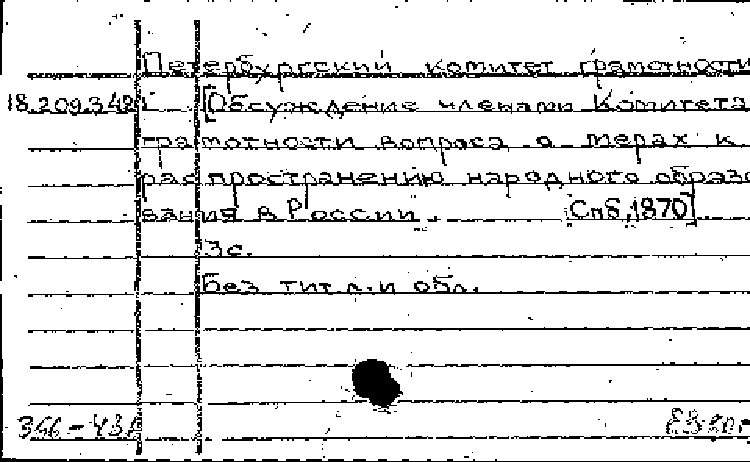 Петербургский комитет грамотности
18.209.348
[Обсуждение членами Комитета
грамотности вопроса о мерах к
распространению народного образо
вания в России. [Спб, 1870]
3с.
Без тит. л. и обл.